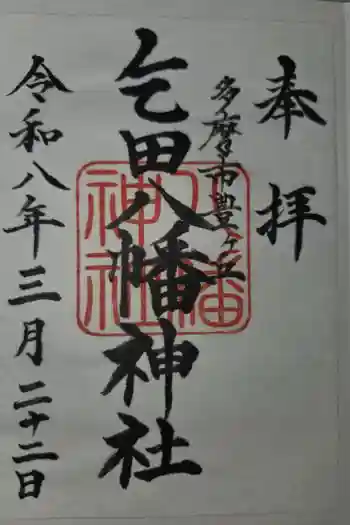 奉拝
多摩市豊ヶ丘
乞田八幡神社
令和八年三月二十二日
八幡
神社